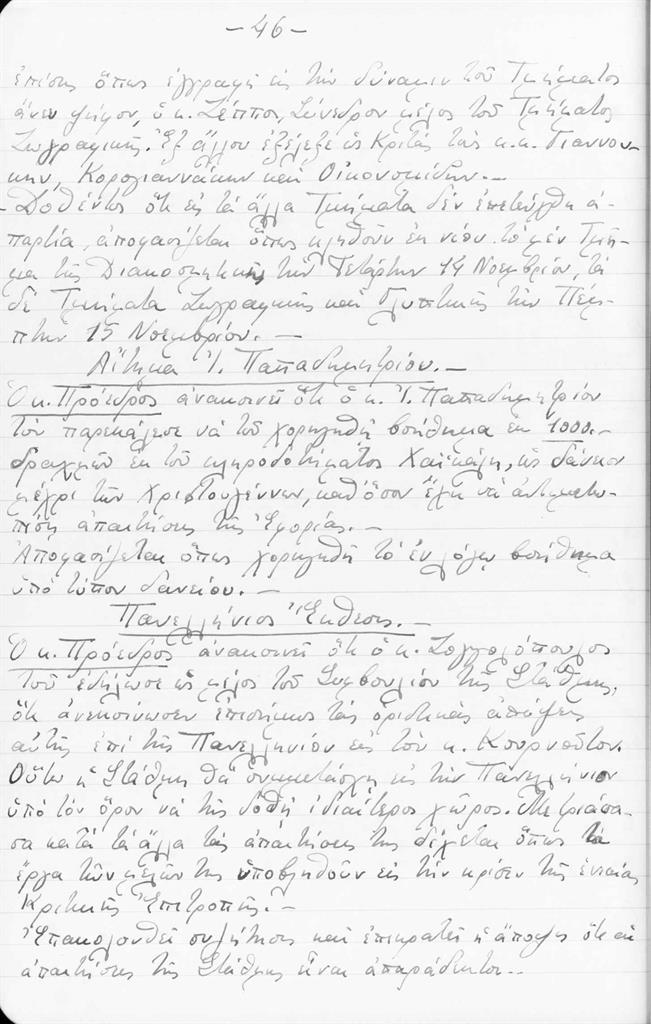 - 46 -
ἐπίσης ὅπως ἐγγραφῇ εἰς τὴν δύναμιν τοῦ Τμήματος
ἄνευ ψήφου, ὁ κ. Ζέππος, Σύνεδρον μέλος τοῦ Τμήματος
Ζωγραφικῆς. Ἐξ ἄλλου ἐξέλεξε ὡς Κριτὰς τοὺς κ.κ. Γιαννου-
κην, Κορογιαννάκην καὶ Οἰκονομίδην. -
- Δοθέντος ὅτι εἰς τὰ ἄλλα Τμήματα δὲν ἐπετεύχθη ἀ-
παρτία, ἀποφασίζεται ὅπως κληθοῦν ἐκ νέου τὸ μὲν Τμῆ-
μα τῆς Διακοσμητικῆς τὴν Τετάρτην 14 Νοεμβρίου, τὰ
δὲ Τμήματα Ζωγραφικῆς καὶ Γλυπτικῆς τὴν Πέμ-
πτην 15 Νοεμβρίου. -
Αἴτημα Ἰ. Παπαδημητρίου. -
Ὁ κ. Πρόεδρος ἀνακοινεῖ ὅτι ὁ κ. Ἰ. Παπαδημητρίου
τὸν παρεκάλεσε νὰ τοῦ χορηγηθῇ βοήθημα ἐκ 1000.-
δραχμῶν ἐκ τοῦ κληροδοτήματος Χαϊκάλη, ὡς δάνειον
μέχρι τῶν Χριστουγέννων, καθ' ὅσον ἔχει νὰ ἀντιμετω-
πίσῃ ἀπαιτήσεις τῆς Ἐφορίας. -
Ἀποφασίζεται ὅπως χορηγηθῇ τὸ ἐν λόγῳ βοήθημα
ὑπὸ τύπον δανείου. -
Πανελλήνιος Ἔκθεσις. -
Ὁ κ. Πρόεδρος ἀνακοινεῖ ὅτι ὁ κ. Ζογγολόπουλος
τοῦ ἐδήλωσε ὡς μέλος τοῦ Συμβουλίου τῆς Στάθμης,
ὅτι ἀνεκοίνωσεν ἐπισήμως τὰς ὁριστικὰς ἀπόψεις
αὐτῆς ἐπὶ τῆς Πανελληνίου εἰς τὸν κ. Κουρνοῦτον.
Οὕτω ἡ Στάθμη θὰ συμμετάσχῃ εἰς τὴν Πανελλήνιον
ὑπὸ τὸν ὅρον νὰ τῆς δοθῇ ἰδιαίτερος χῶρος. Μετριάσα-
σα κατὰ τὰ ἄλλα τὰς ἀπαιτήσεις της δέχεται ὅπως τὰ
ἔργα τῶν μελῶν της ὑποβληθοῦν εἰς τὴν κρίσιν τῆς ἑνιαίας
Κριτικῆς Ἐπιτροπῆς. -
Ἐπακολουθεῖ συζήτησις καὶ ἐπικρατεῖ ἡ ἄποψις ὅτι αἱ
ἀπαιτήσεις τῆς Στάθμης εἶναι ἀπαράδεκτοι. -